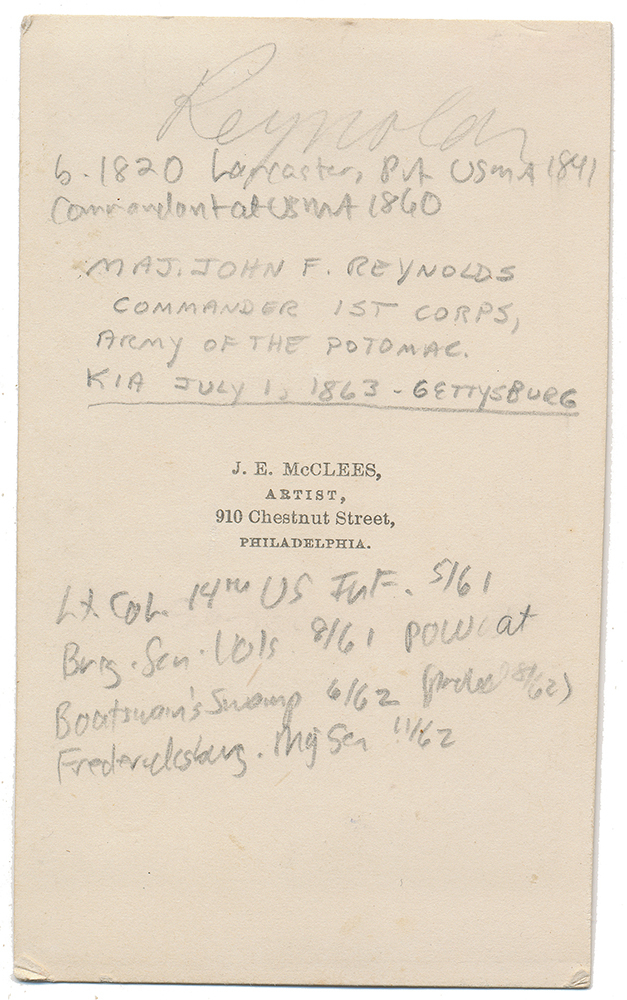 Reynolds
b. 1820 Lancaster, PA USMA 1841
Commandant at USMA 1860
MAJ. JOHN F. REYNOLDS
COMMANDER 1ST CORPS,
ARMY OF THE POTOMAC.
KIA JULY 1, 1863 - GETTYSBURG
J. E. McCLEES,
ARTIST,
910 Chestnut Street,
PHILADELPHIA.
Lt. Col. 14TH US INF. 5/61
Brig. Gen. Vols 8/61 POW at
Boatswain's Swamp 6/62 8/62)
Fredericksburg. Maj Gen 11/62